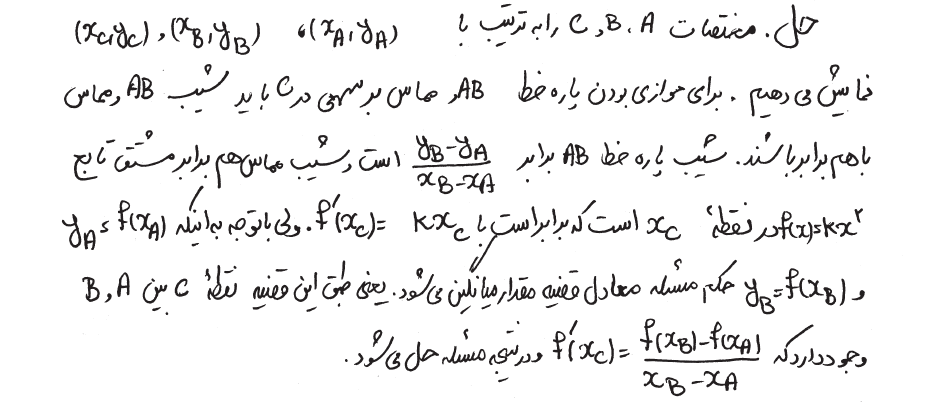 حل. مختصات A، B و C را به ترتیب با (x_A, y_A)، (x_B, y_B) و (x_C, y_C)
نمایش می دهیم. برای موازی بودن پاره خط AB و مماس بر سهمی در C باید شیب AB و مماس
با هم برابر باشند. شیب پاره خط AB برابر (y_B − y_A)/(x_B − x_A) است و شیب مماس هم برابر مشتق تابع
f(x)=kx² در نقطهٔ x_C است که برابر است با f′(x_C)= kx_C. ولی با توجه به اینکه y_A = f(x_A)
و y_B = f(x_B) حکم مسئله معادل قضیه مقدار میانگین می شود. یعنی طبق این قضیه نقطهٔ C بین A و B
وجود دارد که f′(x_C) = (f(x_B) − f(x_A))/(x_B − x_A) و در نتیجه مسئله حل می شود.